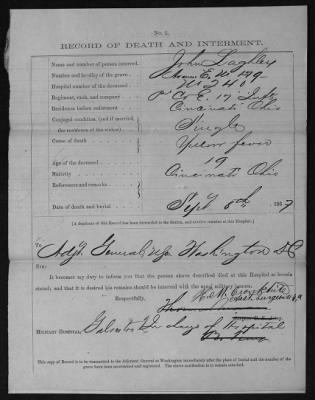 No. 5.
RECORD OF DEATH AND INTERMENT.
Name and number of person interred, John
Number and locality of the grave, E. No 179
Hospital number of the deceased, No 2401
Regiment, rank, and company, Pt Co E. 17" Inf
Residence before enlistment, Cincinnati Ohio
Conjugal condition, (and if married, Single
the residence of the widow)
Cause of death, Yellow fever
Age of the deceased, 19
Nativity, Cincinnati Ohio
References and remarks
Date of death and burial, Sept 8th, 1867
[A duplicate of this Record has been forwarded to the Sexton, and another remains at this Hospital.]
To Adjt. General Washington D.C
SIR:
It becomes my duty to inform you that the person above described died at this Hospital as herein
stated; and that it is desired his remains should be interred with the usual military honors.
Respectfully,
MILITARY HOSPITAL, Galveston In charge of Hospital
This copy of Record is to be transmitted to the Adjutant General at Washington immediately after the place of burial and the number of the
grave have been ascertained and registered. The above notification is to remain attached.